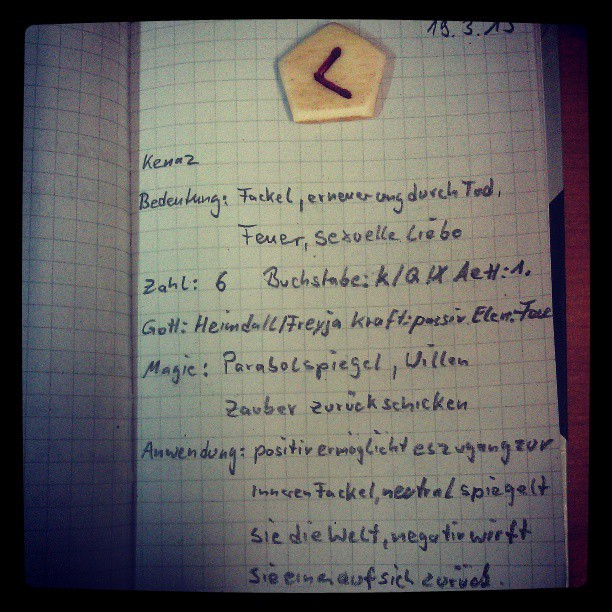 19.3.13
Kenaz
Bedeutung: Fackel, erneuerung durch Tod,
Feuer, sexuelle Liebe
Zahl: 6 Buchstabe: K/Q/X Aett: 1.
Gott: Heimdall/Freyja Kraft: passiv. Elem.:
Magie: Parabolspiegel, Willen
Zauber zurückschicken
Anwendung: positiv ermöglicht es zugang zur
inneren Fackel, neutral spiegelt
sie die Welt, negativ wirft
sie einen auf sich zurück.